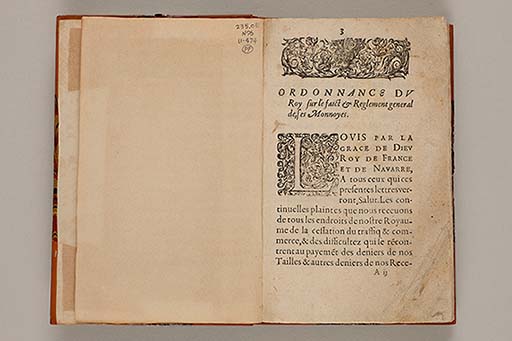 235.05
N75
11-674
PP
3
ORDONNANCE DV
Roy sur le faict & Reglement general
de ses Monnoyes.
LOVIS PAR LA
GRACE DE DIEV
ROY DE FRANCE
ET DE NAVARRE,
A tous ceux qui ces
presentes lettres ver-
ront, Salut. Les con-
tinuelles plaintes que nous receuons
de tous les endroits de nostre Royau-
me de la cessation du traffiq & com-
merce, & des difficultez qui se récōn-
trent au payemēt des deniers de nos
Tailles & autres deniers de nos Rece-
A ij